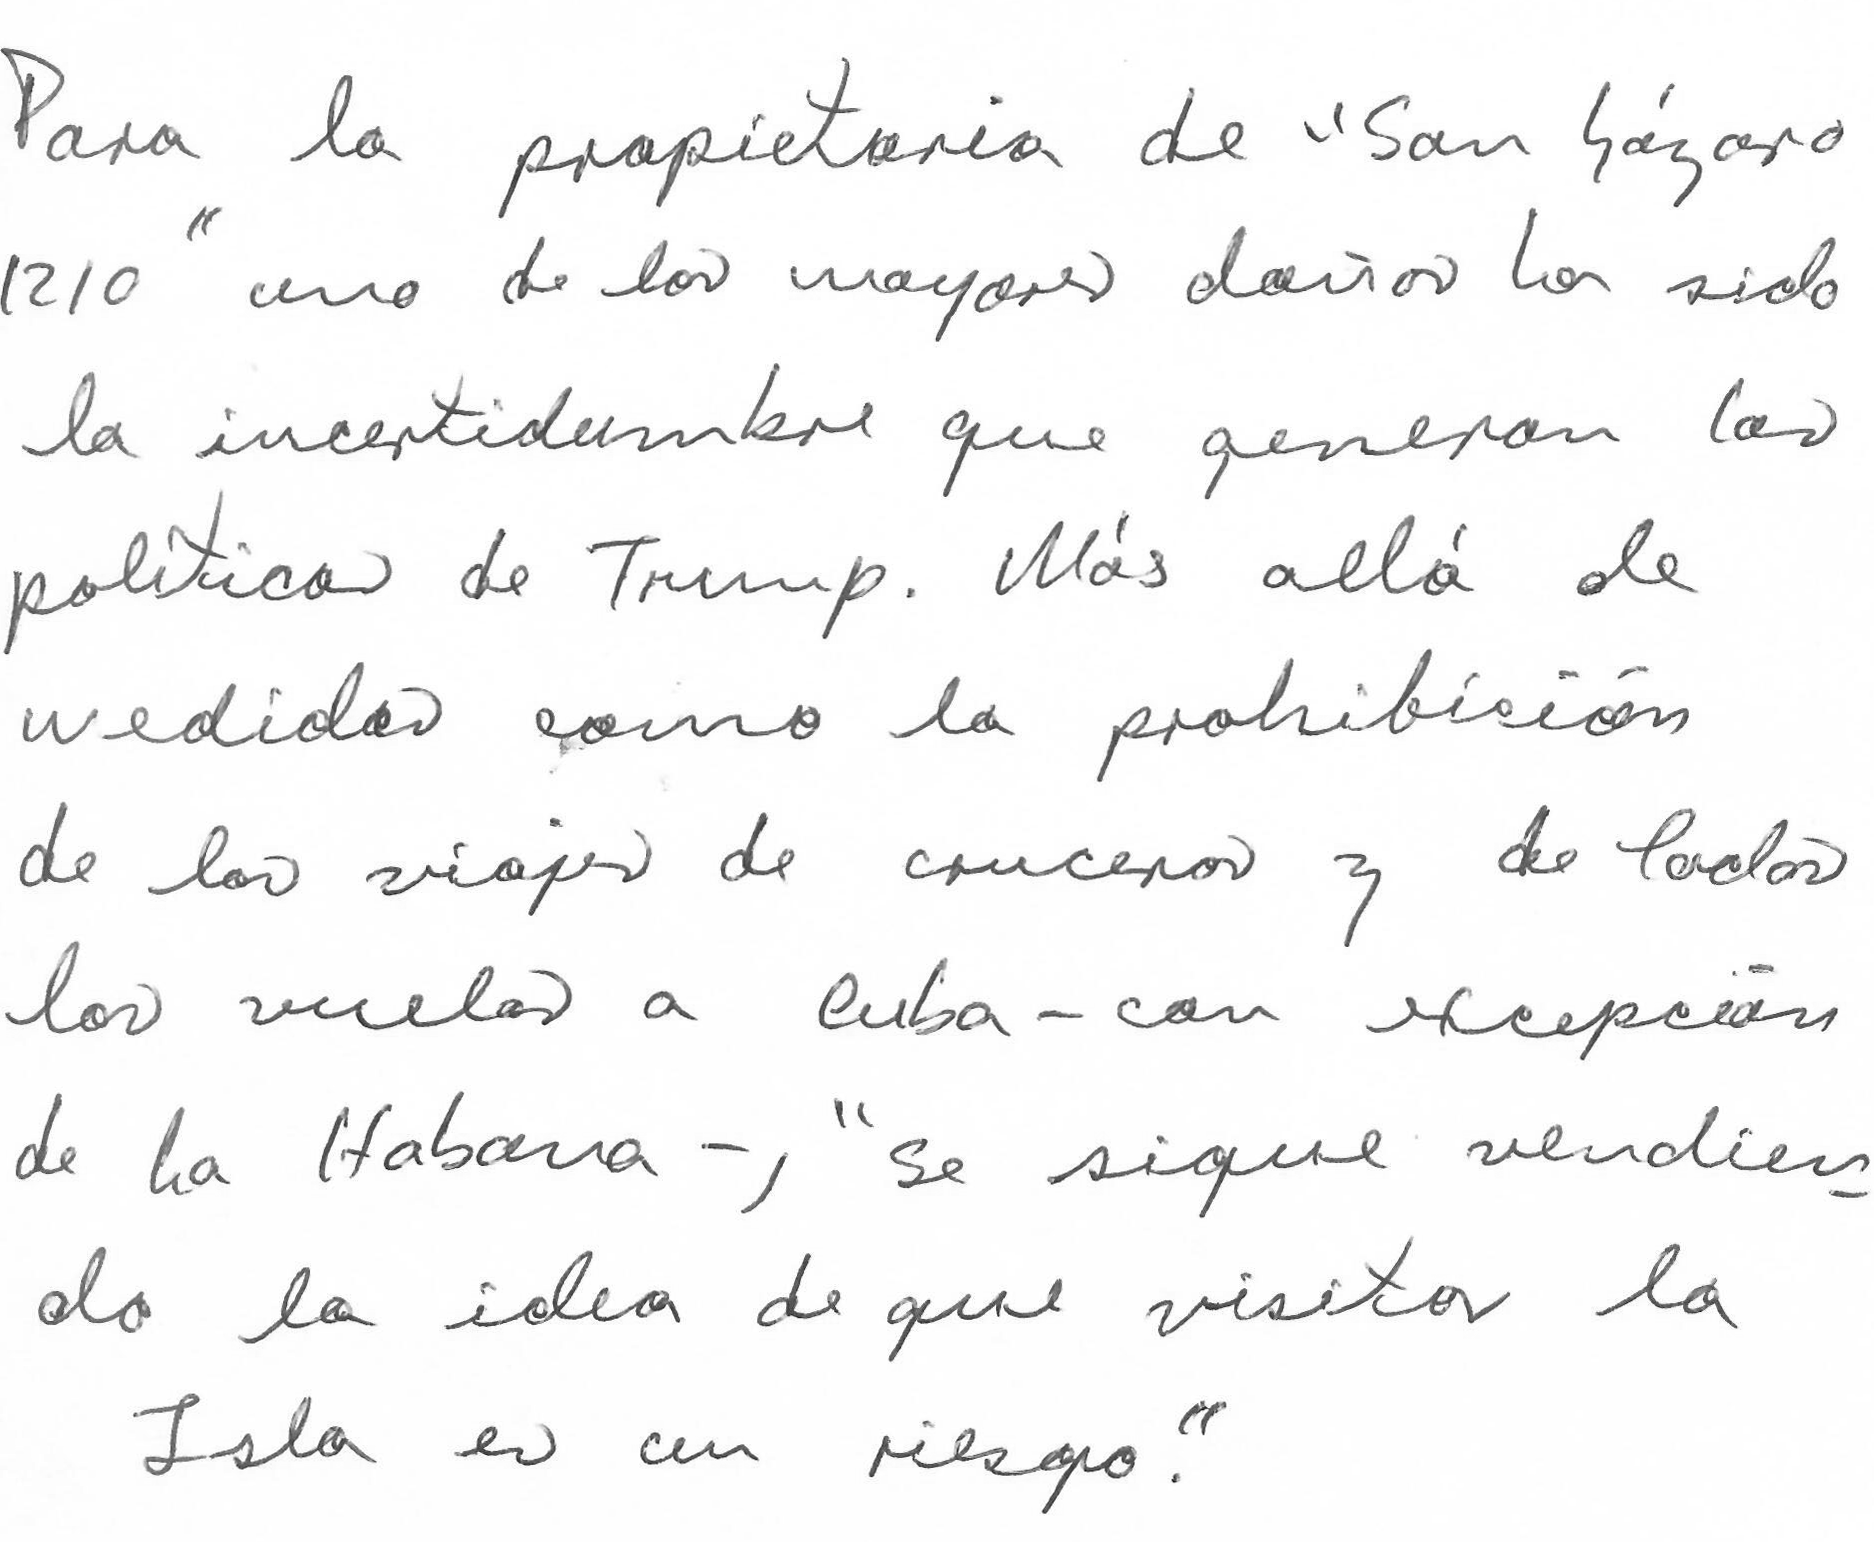 Para la propietaria de "San Lázaro
1210" uno de los mayores daños ha sido
la incertidumbre que generan las
políticas de Trump. Más allá de
medidas como la prohibición
de los viajes de cruceros y de todos
los vuelos a Cuba - con excepción
de La Habana -, "se sigue vendien_
do la idea de que visitar la
Isla es un riesgo."